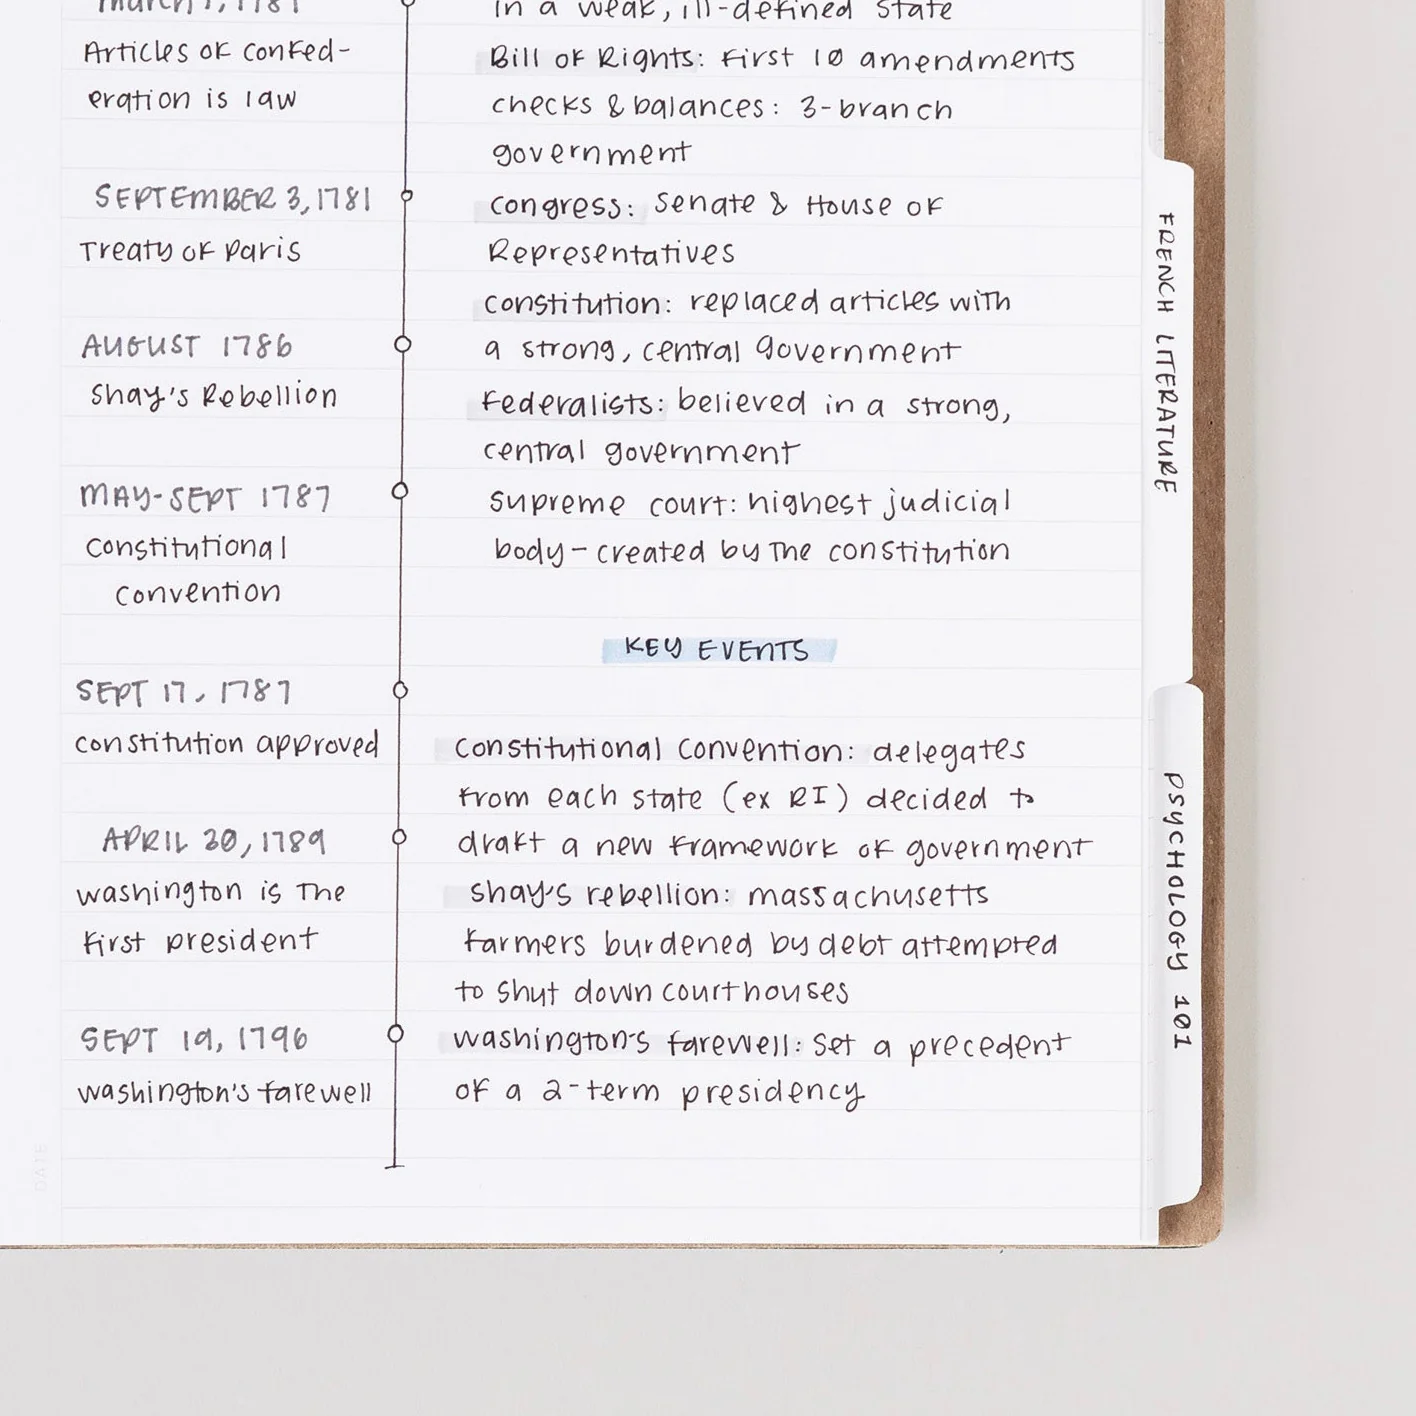 March 1, 1781
Articles of confed-
eration is law
SEPTEMBER 3, 1781
Treaty of Paris
AUGUST 1786
Shay's Rebellion
MAY-SEPT 1787
Constitutional
Convention
SEPT 17, 1787
constitution approved
APRIL 30, 1789
washington is the
first president
SEPT 19, 1796
washington's farewell
in a weak, ill-defined state
Bill of Rights: First 10 amendments
checks & balances: 3-branch
government
congress: Senate & House of
Representatives
constitution: replaced articles with
a strong, central government
Federalists: believed in a strong,
central government
supreme court: highest judicial
body - created by the constitution
KEY EVENTS
Constitutional Convention: delegates
from each state (ex RI) decided to
draft a new framework of government
shay's rebellion: massachusetts
farmers burdened by debt attempted
to shut down courthouses
washington's farewell: set a precedent
of a 2-term presidency
FRENCH LITERATURE
PSYCHOLOGY 101
DATE